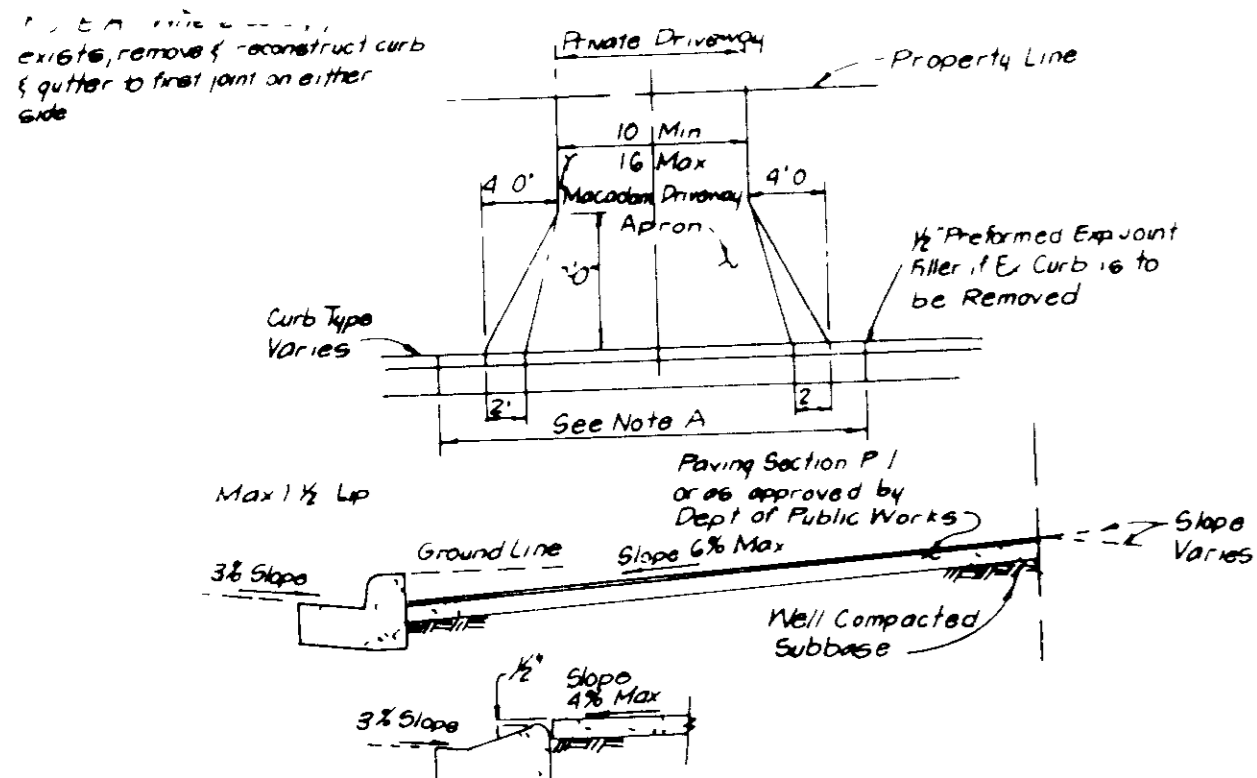 exists, remove & reconstruct curb
& gutter to first joint on either
side
Private Driveway
Property Line
10 Min
16 Max
4 0'
4'0
Macadam Driveway
Apron
½" Preformed Exp Joint
Filler if Ex Curb is to
be Removed
Curb Type
Varies
2'
2
See Note A
Paving Section P 1
or as approved by
Dept of Public Works
Max 1 ½ Lip
Ground Line
Slope 6% Max
Slope
Varies
3% Slope
Well Compacted
Subbase
½"
Slope
4% Max
3% Slope